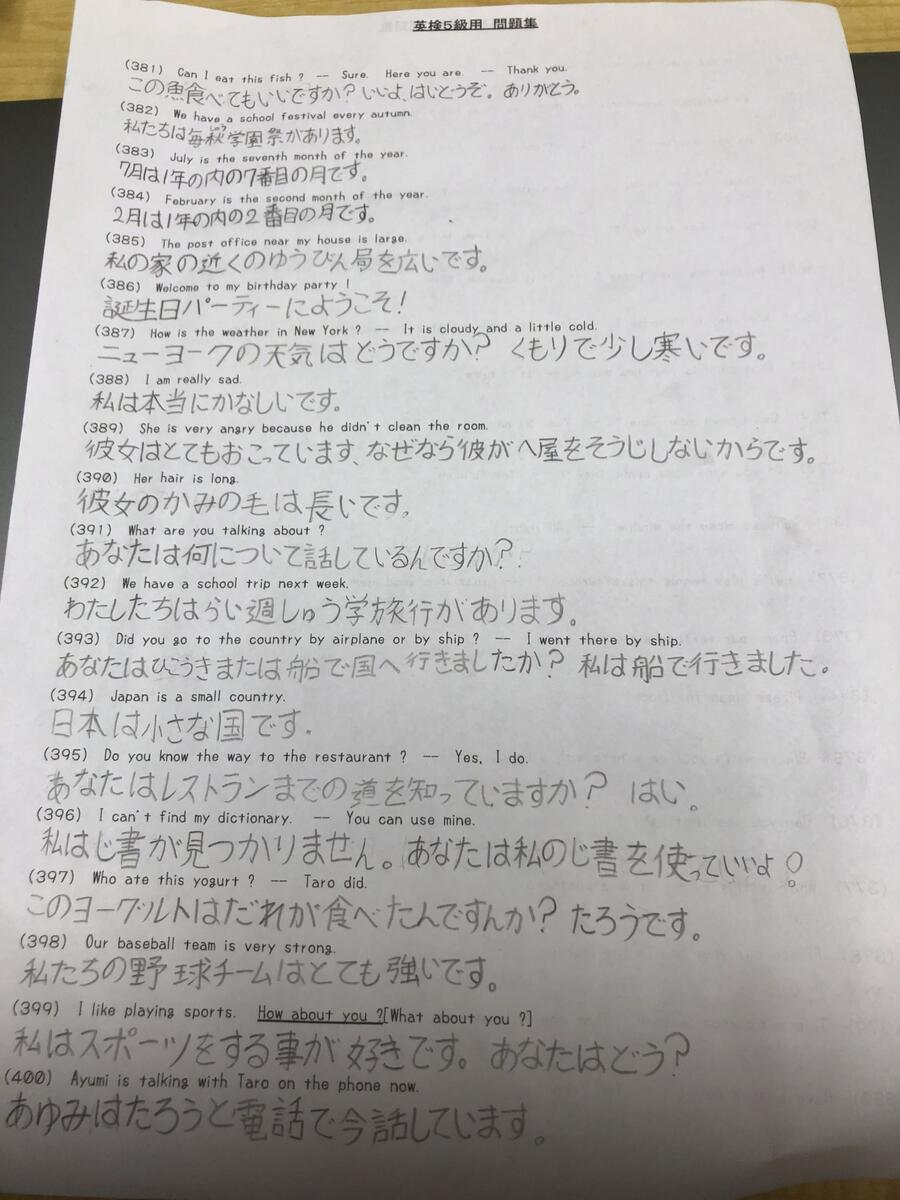 英検5級用 問題集
(381) Can I eat this fish ? -- Sure. Here you are. -- Thank you.
この魚食べてもいいですか？いいよ、はいどうぞ。ありがとう。
(382) We have a school festival every autumn.
私たちは毎秋学園祭があります。
(383) July is the seventh month of the year.
7月は1年の内の7番目の月です。
(384) February is the second month of the year.
2月は1年の内の2番目の月です。
(385) The post office near my house is large.
私の家の近くのゆうびん局を広いです。
(386) Welcome to my birthday party !
誕生日パーティーにようこそ！
(387) How is the weather in New York ? -- It is cloudy and a little cold.
ニューヨークの天気はどうですか？くもりで少し寒いです。
(388) I am really sad.
私は本当にかなしいです。
(389) She is very angry because he didn't clean the room.
彼女はとてもおこっています、なぜなら彼がへ屋をそうじしないからです。
(390) Her hair is long.
彼女のかみの毛は長いです。
(391) What are you talking about ?
あなたは何について話しているんですか？
(392) We have a school trip next week.
わたしたちはらい週しゅう学旅行があります。
(393) Did you go to the country by airplane or by ship ? -- I went there by ship.
あなたはひこうきまたは船で国へ行きましたか？私は船で行きました。
(394) Japan is a small country.
日本は小さな国です.
(395) Do you know the way to the restaurant ? -- Yes, I do.
あなたはレストランまでの道を知っていますか？はい。
(396) I can't find my dictionary. -- You can use mine.
私はじ書が見つかりません。あなたは私のじ書を使っていいよ。
(397) Who ate this yogurt ? -- Taro did.
このヨーグルトはだれが食べたんですんか？たろうです。
(398) Our baseball team is very strong.
私たちの野球チームはとても強いです。
(399) I like playing sports. How about you ?[What about you ?]
私はスポーツをする事が好きです。あなたはどう？
(400) Ayumi is talking with Taro on the phone now.
あゆみはたろうと電話で今話しています。